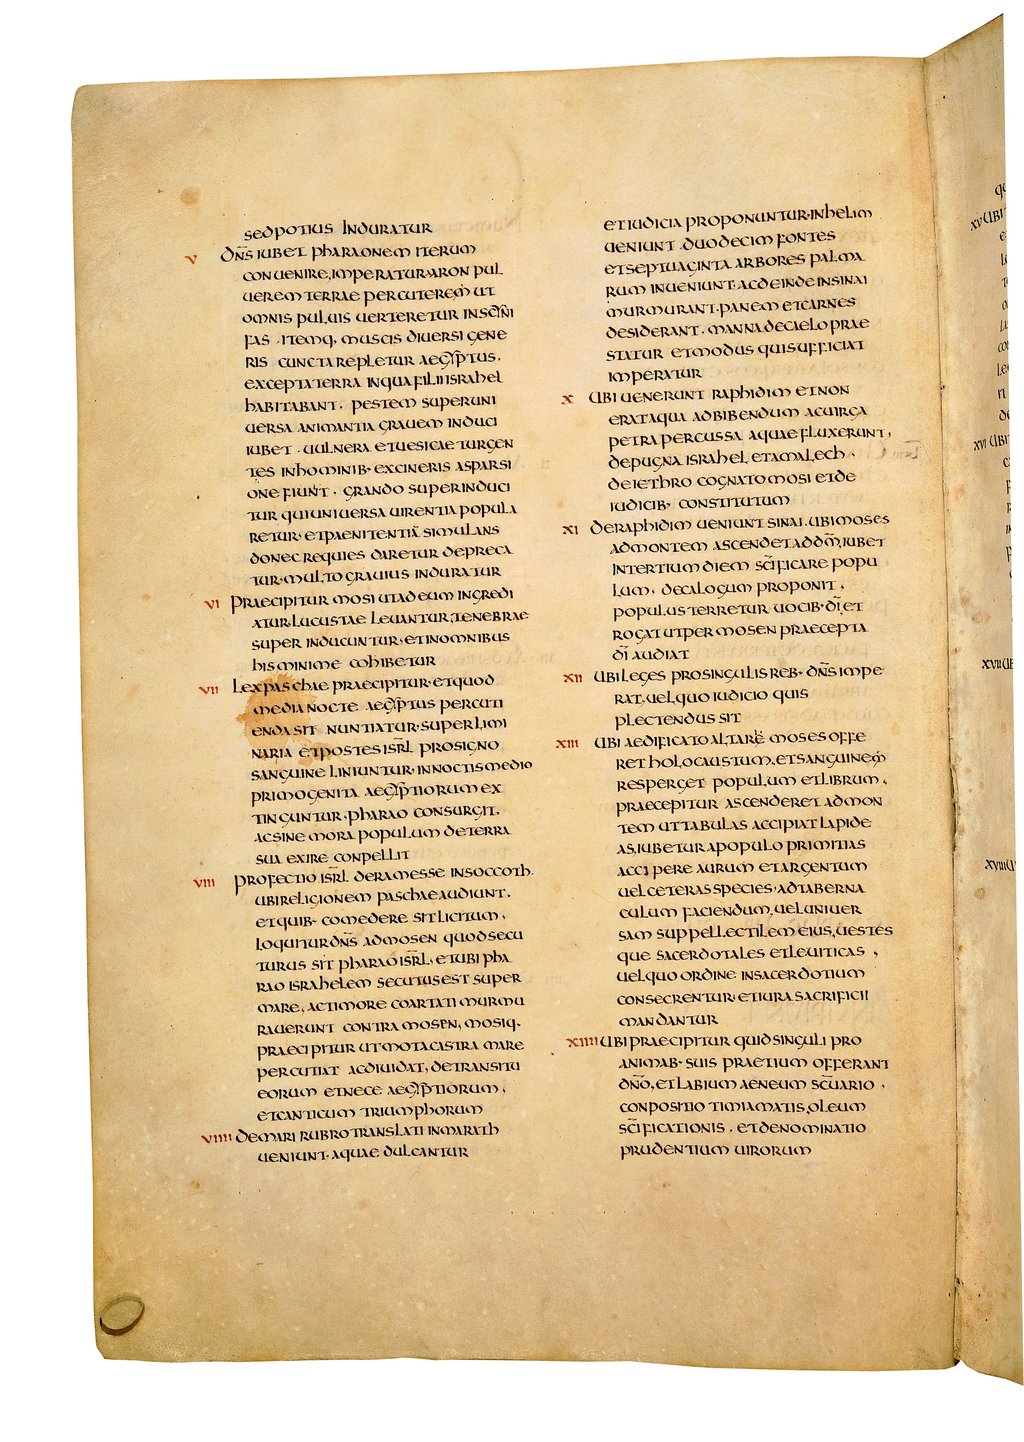 sed potius induratur
V dn̄s iubet pharaonem iterum
conuenire, imperatur aron pul
uerem terrae percuterem̄ ut
omnis puluis uerteretur in scȳni
fas . itemq· muscis diuersi gene
ris cuncta repletur aegyptus.
excepta terra in qua filii israhel
habitabant . pestem super uni
uersa animantia grauem induci
iubet . uulnera et uesicae turgen
tes in hominib· ex cineris asparsi
one fiunt . grando super induci
tur qui uniuersa uirentia popula
retur · et paenitentiā simulans
donec requies daretur depreca
tur · multo grauius induratur
VI praecipitur mosi ut ad eum ingredi
atur. lucustae leuantur, tenebrae
super inducuntur · et in omnibus
his minime cohibetur
VII Lex paschae praecipitur · et quod
media nocte aegyptus percuti
enda sit nuntiatur · super limi
naria et postes isrl̄ pro signo
sanguine liniuntur · in noctis medio
primogenita aegyptiorum ex
tinguntur · pharao consurgit,
ac sine mora populum de terra
sua exire conpellit
VIII profectio isrl̄ de ramesse in soccoth.
ubi religionem paschae audiunt .
et quib· comedere sit licitum .
loquitur dn̄s ad mosen quod secu
turus sit pharao isrl̄. et ubi pha
rao israhelem secutus est super
mare, ac timore coartati murmu
rauerunt contra mosen, mosiq·
praecipitur ut mota castra mare
percutiat ac diuidat, de transitu
eorum et nece aegyptiorum .
et canticum triumphorum
VIIII de mari rubro translati in marath
ueniunt · aquae dulcantur
et iudicia proponuntur · in helim
ueniunt duodecim fontes
et septuaginta arbores palma
rum inueniunt · ac deinde in sinai
murmurant · panem et carnes
desiderant . manna de caelo prae
statur et modus qui sufficiat
imperatur
X ubi uenerunt raphidim et non
erat aqua ad bibendum ac uirga
petra percussa aquae fluxerunt,
de pugna israhel et amalech .
de iethro cognato mosi et de
iudicib· constitutum
XI de raphidim ueniunt sinai. ubi moses
ad montem ascendet ad dm̄, iubet
in tertium diem sc̄ificare popu
lum . decalogum proponit .
populus terretur uocib· dī, et
rogat ut per mosen praecepta
dī audiat
XII ubi leges pro singulis reb· dn̄s impe
rat. uel quo iudicio quis
plectendus sit
XIII ubi aedificato altare moses offe
ret holocaustum. et sanguinem
resperget populum et librum .
praecepitur ascenderet ad mon
tem ut tabulas accipiat lapide
as, iubetur a populo primitias
accipere aurum et argentum
uel ceteras species · ad taberna
culum faciendum, uel uniuer
sam suppellectilem eius, uestes
que sacerdotales et leuiticas ,
uel quo ordine in sacerdotium
consecrentur · et iura sacrificii
mandantur
XIIII ubi praecipitur quid singuli pro
animab· suis praetium offerant
dn̄o, et labium aeneum sc̄uario .
conpositio timiamatis, oleum
sc̄ificationis . et denominatio
prudentium uirorum
XV UBI
XVI UBI
XVII UB
XVIII U